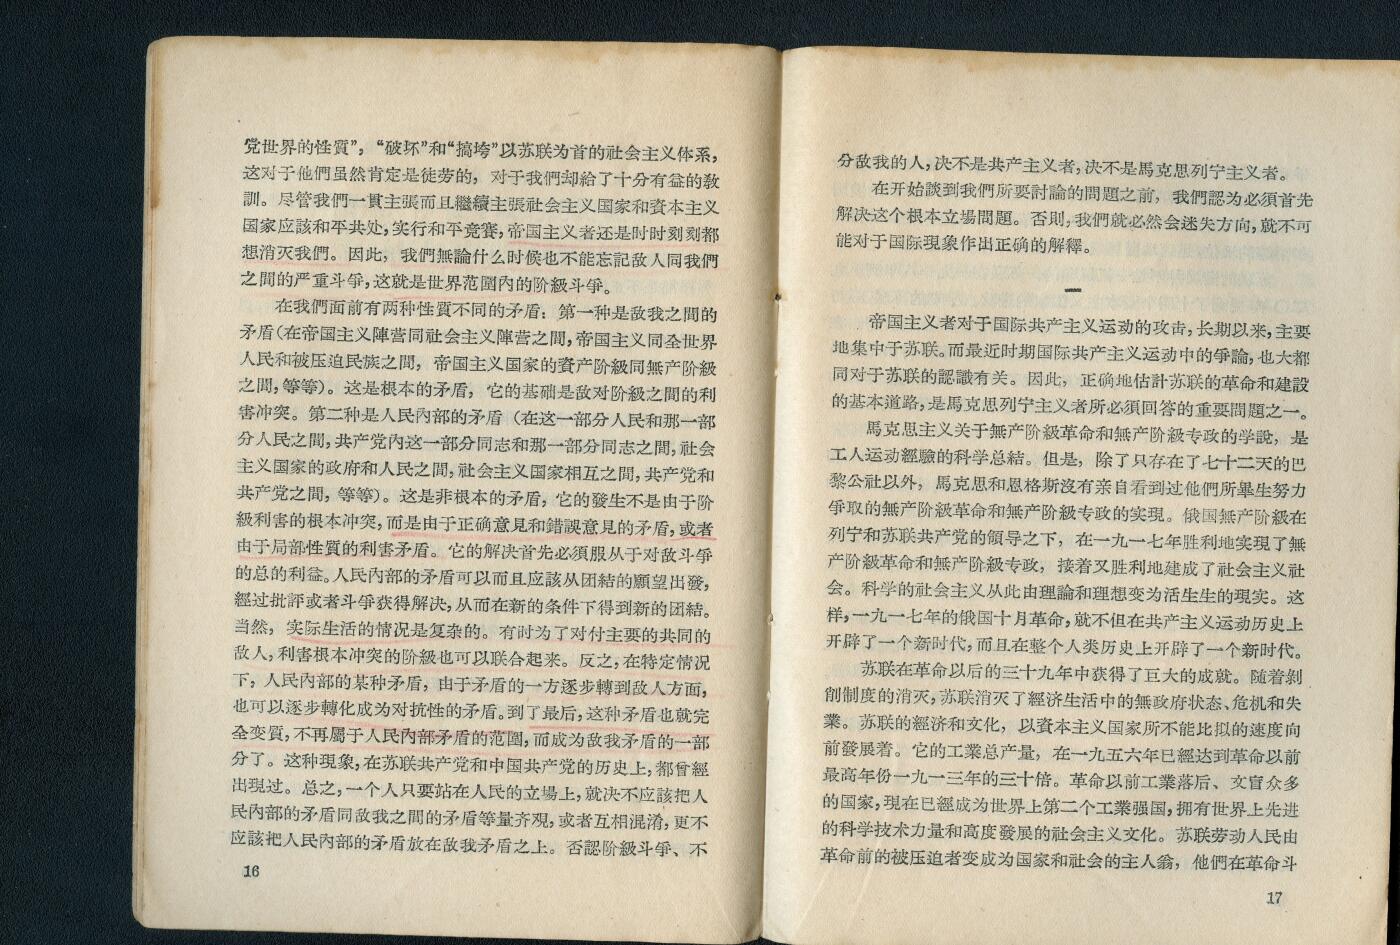 党世界的性質”，“破坏”和“搞垮”以苏联为首的社会主义体系，
这对于他們虽然肯定是徒劳的，对于我們却給了十分有益的敎
訓。尽管我們一貫主張而且繼續主張社会主义国家和資本主义
国家应該和平共处，实行和平竞賽，帝国主义者还是时时刻刻都
想消灭我們。因此，我們無論什么时候也不能忘記敌人同我們
之間的严重斗爭，这就是世界范圍內的阶級斗爭。
在我們面前有两种性質不同的矛盾：第一种是敌我之間的
矛盾（在帝国主义陣营同社会主义陣营之間，帝国主义同全世界
人民和被压迫民族之間，帝国主义国家的資产阶級同無产阶級
之間，等等）。这是根本的矛盾，它的基础是敌对阶級之間的利
害冲突。第二种是人民內部的矛盾（在这一部分人民和那一部
分人民之間，共产党內这一部分同志和那一部分同志之間，社会
主义国家的政府和人民之間，社会主义国家相互之間，共产党和
共产党之間，等等）。这是非根本的矛盾，它的發生不是由于阶
級利害的根本冲突，而是由于正确意見和錯誤意見的矛盾，或者
由于局部性質的利害矛盾。它的解决首先必須服从于对敌斗爭
的总的利益。人民內部的矛盾可以而且应該从团結的願望出發，
經过批評或者斗爭获得解决，从而在新的条件下得到新的团結。
当然，实际生活的情况是复杂的。有时为了对付主要的共同的
敌人，利害根本冲突的阶級也可以联合起来。反之，在特定情况
下，人民內部的某种矛盾，由于矛盾的一方逐步轉到敌人方面，
也可以逐步轉化成为对抗性的矛盾。到了最后，这种矛盾也就完
全变質，不再屬于人民內部矛盾的范圍，而成为敌我矛盾的一部
分了。这种現象，在苏联共产党和中国共产党的历史上，都曾經
出現过。总之，一个人只要站在人民的立場上，就决不应該把人
民內部的矛盾同敌我之間的矛盾等量齐观，或者互相混淆，更不
应該把人民內部的矛盾放在敌我矛盾之上。否認阶級斗爭、不
16
分敌我的人，决不是共产主义者，决不是馬克思列宁主义者。
在开始談到我們所要討論的問題之前，我們認为必須首先
解决这个根本立場問題。否則，我們就必然会迷失方向，就不可
能对于国际現象作出正确的解釋。
一
帝国主义者对于国际共产主义运动的攻击，长期以来，主要
地集中于苏联。而最近时期国际共产主义运动中的爭論，也大都
同对于苏联的認識有关。因此，正确地估計苏联的革命和建設
的基本道路，是馬克思列宁主义者所必須回答的重要問題之一。
馬克思主义关于無产阶級革命和無产阶級专政的学說，是
工人运动經驗的科学总結。但是，除了只存在了七十二天的巴
黎公社以外，馬克思和恩格斯沒有亲自看到过他們所畢生努力
爭取的無产阶級革命和無产阶級专政的实現。俄国無产阶級在
列宁和苏联共产党的領导之下，在一九一七年胜利地实現了無
产阶級革命和無产阶級专政，接着又胜利地建成了社会主义社
会。科学的社会主义从此由理論和理想变为活生生的現实。这
样，一九一七年的俄国十月革命，就不但在共产主义运动历史上
开辟了一个新时代，而且在整个人类历史上开辟了一个新时代。
苏联在革命以后的三十九年中获得了巨大的成就。随着剝
削制度的消灭，苏联消灭了經济生活中的無政府状态、危机和失
業。苏联的經济和文化，以資本主义国家所不能比拟的速度向
前發展着。它的工業总产量，在一九五六年已經达到革命以前
最高年份一九一三年的三十倍。革命以前工業落后、文盲众多
的国家，現在已經成为世界上第二个工業强国，拥有世界上先进
的科学技术力量和高度發展的社会主义文化。苏联劳动人民由
革命前的被压迫者变成为国家和社会的主人翁，他們在革命斗
17